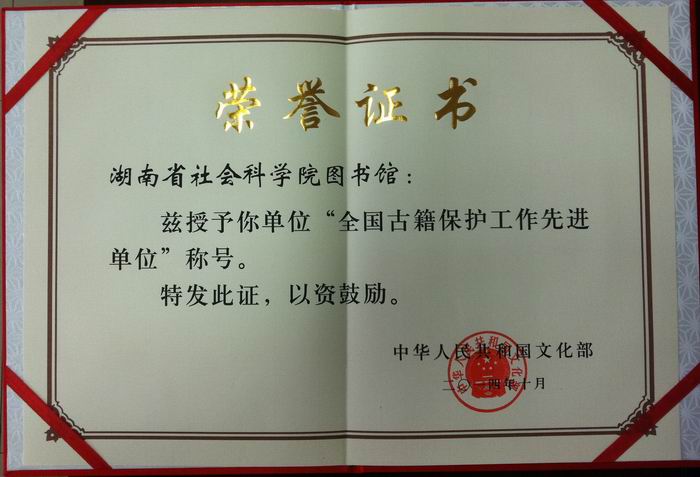 荣誉证书
湖南省社会科学院图书馆：
兹授予你单位“全国古籍保护工作先进
单位”称号。
特发此证，以资鼓励。
中华人民共和国文化部
二〇一四年十月
中华人民共和国文化部